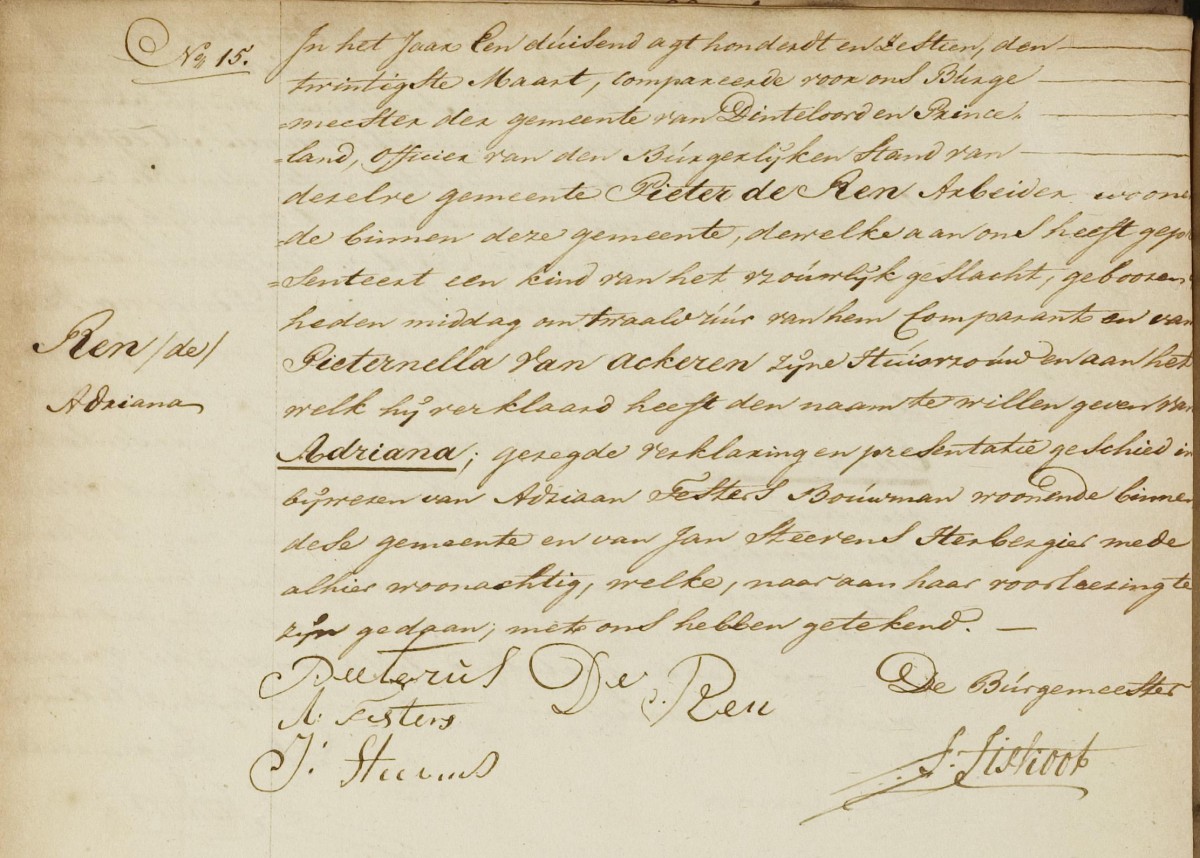 No 15.
In het Jaar Een dúisend agt honderdt en Zestien, den
twintigste Maart, Compareerde voor ons Búrge
=meester der gemeente van Dinteloord en Prince,
=land, Officier van den Búrgerlijken Stand van
dezelve gemeente Pieter de Ren Arbeider woonen
=de binnen deze gemeente, dewelke aan ons heeft gepre
=senteert een kind van het vroúwlijk geslacht, gebooren
heden middag om twaalv úúr van hem Comparant en van
Pieternella Van Ackeren zijne Húisvroúw en aan het
welk hij verklaard heeft den naam te willen geven van
Adriana; gezegde verklaring en presentatie geschied in
bijwezen van Adriaan Festers Boúwman woonende binnen
dese gemeente en van Jan Steevens Herbergier mede
alhier woonachtig, welke, naar aan haar voorleezing te
zijn gedaan, met ons hebben getekend.
Ren /de/
Adriana
Peeterús De Ren
A: Festers
J: Steevens
De Búrgemeester